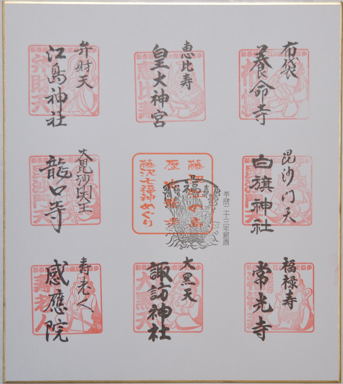 布袋
養命寺
恵比寿
皇大神宮
弁財天
江島神社
毘沙門天
白旗神社
藤沢七福神めぐり
毘沙門天王
龍口寺
福禄寿
常光寺
大黒天
諏訪神社
寿老人
感應院